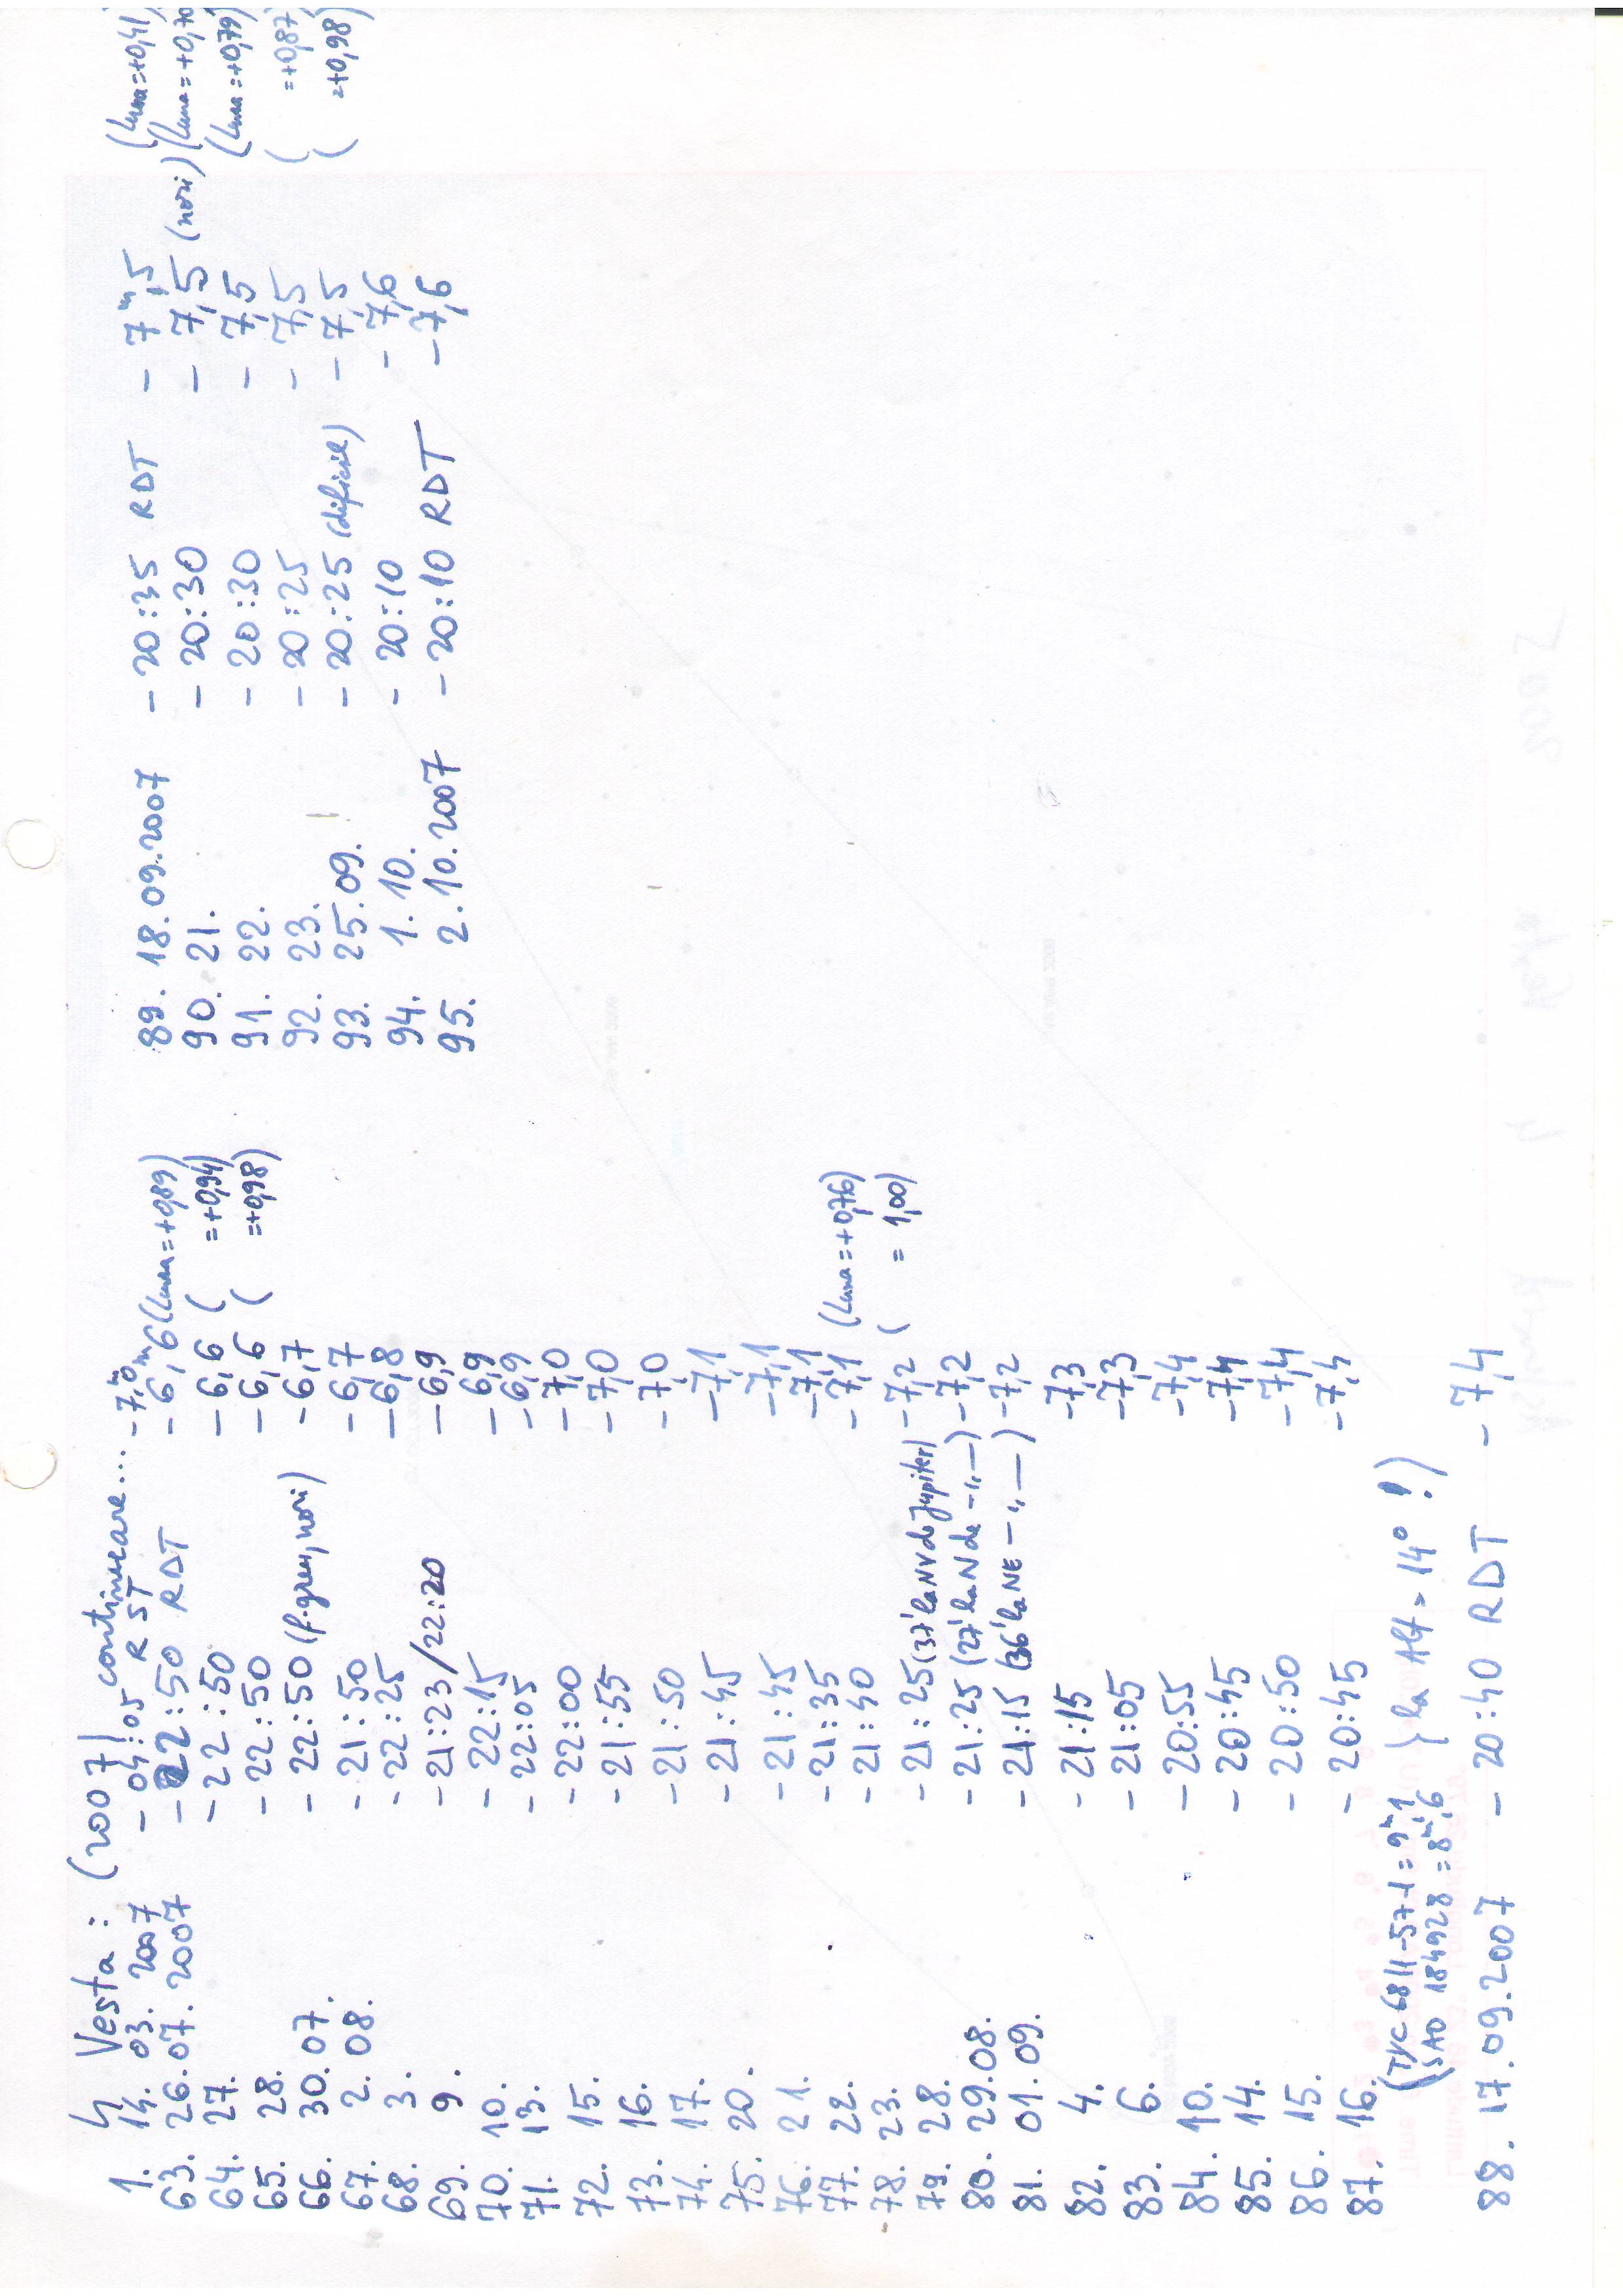 4 Vesta : (2007) continuare...
1. 14. 03. 2007 - 04:05 R ST - 7,ᵐ0
63. 26.07.2007 - 22:50 RDT - 6,ᵐ6 (Luna=+0,89)
64. 27. - 22:50 - 6,6 ( =+0,94)
65. 28. - 22:50 - 6,6 ( =+0,98)
66. 30.07. - 22:50 (f.greu, nori) - 6,7
67. 2.08. - 21:50 - 6,7
68. 3. - 22:25 - 6,8
69. 9. - 21:23/22:20 - 6,9
70. 10. - 22:15 - 6,9
71. 13. - 22:05 - 6,9
72. 15. - 22:00 - 7,0
73. 16. - 21:55 - 7,0
74. 17. - 21:50 - 7,0
75. 20. - 21:45 - 7,1
76. 21. - 21:45 - 7,1
77. 22. - 21:35 - 7,1
78. 23. - 21:40 - 7,1 (Luna=+0,76)
79. 28. - 21:25 (37' la NV de Jupiter) - 7,2 ( = 1,00)
80. 29.08. - 21:25 (27' la N de -"-) - 7,2
81. 01.09. - 21:15 (36' la NE -"-) - 7,2
82. 4. - 21:15 - 7,3
83. 6. - 21:05 - 7,3
84. 10. - 20:55 - 7,4
85. 14. - 20:45 - 7,4
86. 15. - 20:50 - 7,4
87. 16. - 20:45 - 7,4
(TYC 6811-57-1 = 9ᵐ,1
(SAO 184928 = 8ᵐ,6 } la Alt = 14° !)
88. 17.09.2007 - 20:40 RDT - 7,4
89. 18.09.2007 - 20:35 RDT - 7ᵐ,5 (Luna=+0,41)
90. 21. - 20:30 - 7,5 (nori) (Luna=+0,70
91. 22. - 20:30 - 7,5 (Luna=+0,79)
92. 23. - 20:25 - 7,5 ( =+0,87)
93. 25.09. - 20:25 (dificil) - 7,5 ( =+0,98)
94. 1.10. - 20:10 - 7,6
95. 2.10.2007 - 20:10 RDT - 7,6